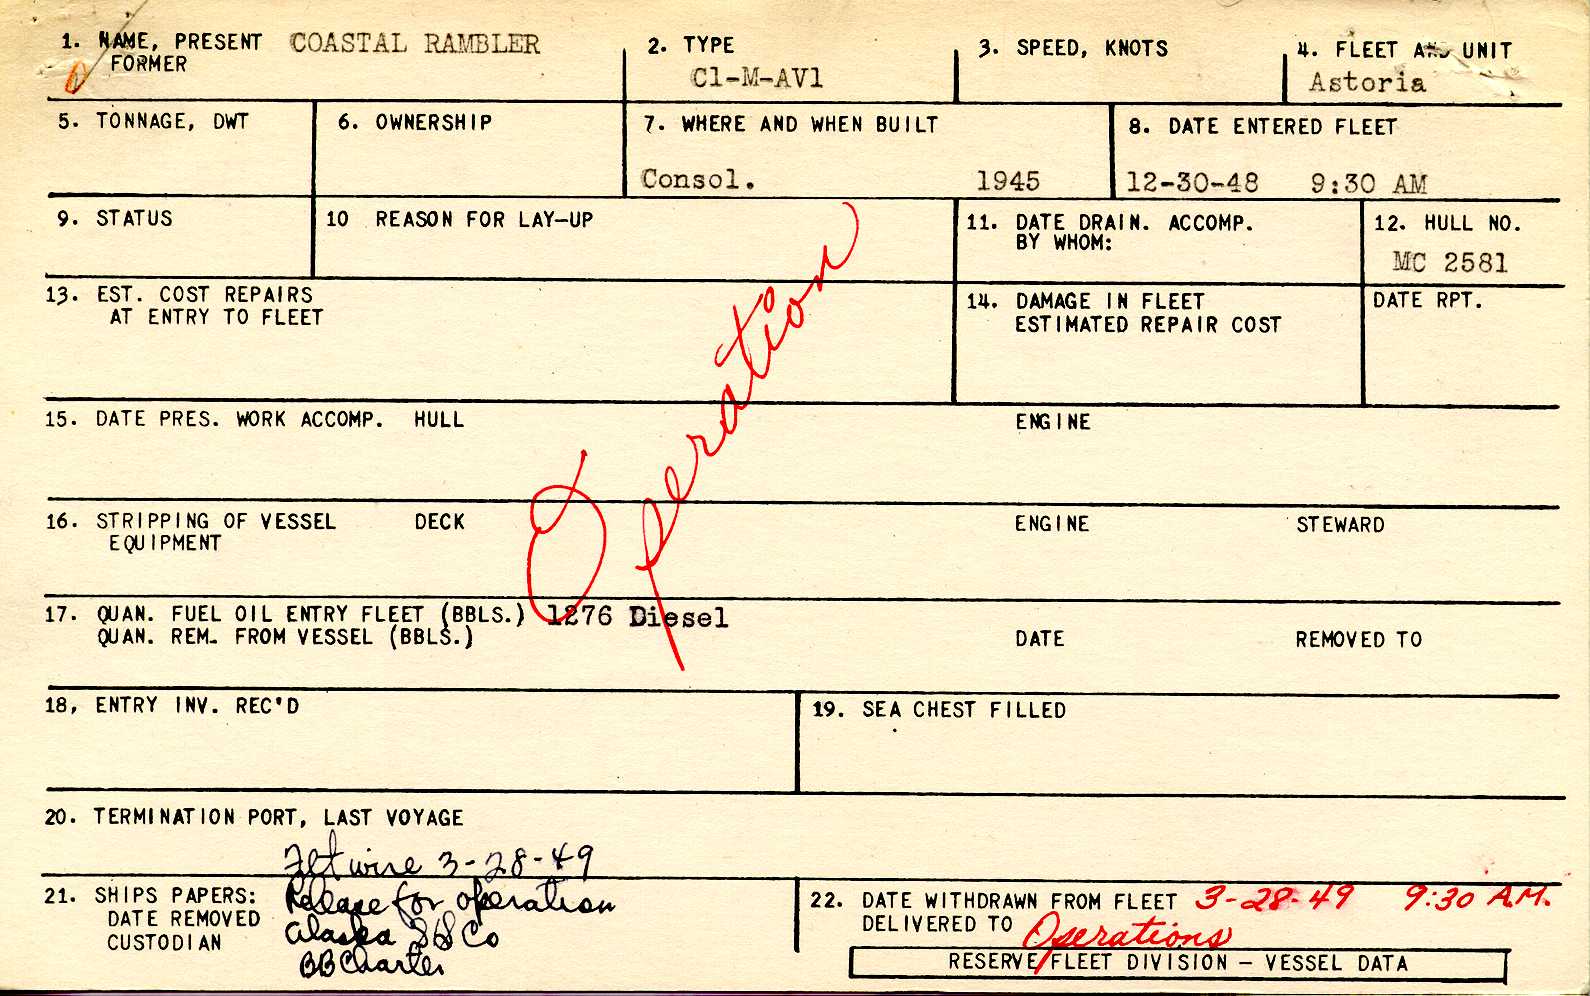 1. NAME, PRESENT COASTAL RAMBLER
FORMER
2. TYPE
C1-M-AV1
3. SPEED, KNOTS
4. FLEET AND UNIT
Astoria
5. TONNAGE, DWT
6. OWNERSHIP
7. WHERE AND WHEN BUILT
Consol. 1945
8. DATE ENTERED FLEET
12-30-48 9:30 AM
9. STATUS
10 REASON FOR LAY-UP
11. DATE DRAIN. ACCOMP.
BY WHOM:
12. HULL NO.
MC 2581
13. EST. COST REPAIRS
AT ENTRY TO FLEET
14. DAMAGE IN FLEET
ESTIMATED REPAIR COST
DATE RPT.
Operation
15. DATE PRES. WORK ACCOMP. HULL ENGINE
16. STRIPPING OF VESSEL DECK ENGINE STEWARD
EQUIPMENT
17. QUAN. FUEL OIL ENTRY FLEET (BBLS.) 1276 Diesel
QUAN. REM. FROM VESSEL (BBLS.) DATE REMOVED TO
18, ENTRY INV. REC'D
19. SEA CHEST FILLED
20. TERMINATION PORT, LAST VOYAGE
Flt wire 3-28-49
21. SHIPS PAPERS: Release for operation
DATE REMOVED Alaska SS Co
CUSTODIAN BB Charter
22. DATE WITHDRAWN FROM FLEET 3-28-49 9:30 A.M.
DELIVERED TO Operations
RESERVE FLEET DIVISION - VESSEL DATA